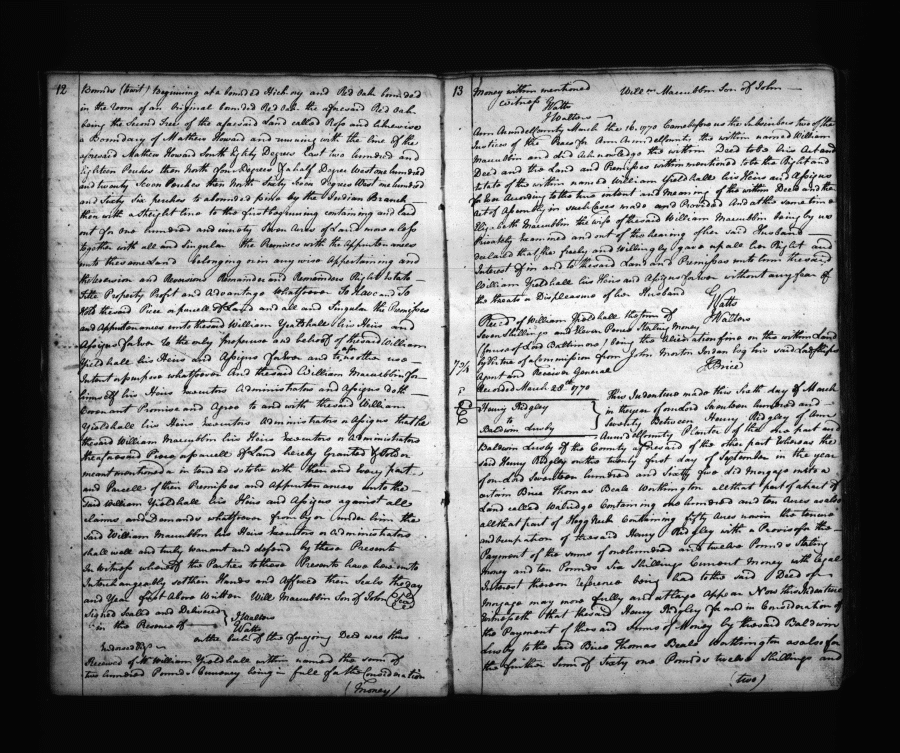 12
Bounds (to wit) Beginning at a bounded Hickory and Red Oak bounded
in the room of an Original bounded Red Oak the aforesaid Red Oak
being the Second Tree of the aforesaid Land called Ross and likewise
a Boundary of Mathew Howard and running with the line of the
aforesaid Mathew Howard South Eighty Degrees East two hundred and
Eighteen Perches then North four Degrees & a half Degree West one hundred
and twenty Seven Perches then North Sixty Seven Degrees West one hundred
and Sixty Six perches to a bounded by the Indian Branch
then with a Straight line to the first beginning containing and laid
out for one hundred and Seven Acres of Land more or less
together with all and Singular the Premises with the Appurtenances
unto the same Land belonging or in any wise Appertaining and
the Reversion and Reversions Remainder and Remainders Right Estate
Title Property Profit and Advantage whatsoever To Have and To
Hold the said Piece or parcell of Land and all and Singular the Premises
and Appurtenances unto the said William Yieldhall his Heirs and
Assigns forever to the only propper use and behoof of the said William
Yieldhall his Heirs and Assigns forever and to no other use
Intent or purpose whatsoever And the said William Maccubbin for
himself his Heirs Executors Administrators and Assigns doth
Covenant Promise and Agree to and with the said William
Yieldhall his Heirs Executors Administrators or Assigns that he
the said William Maccubbin his Heirs Executors or Administrators
the aforesaid Piece or parcell of Land hereby Granted
meant mentioned or intended to be with their and Every part
and Parcell of their Premises and Appurtenances unto the
said William Yieldhall his Heirs and Assigns against all
claims and Demands whatsoever from by or under him the
said William Maccubbin his Heirs Executors or Administrators
shall well and truly warrant and defend by these Presents
In Witness whereof the Parties to these Presents have hereunto
Interchangeably set their Hands and Affixed their Seals the day
and Year first above Written Will Maccubbin Son of John (Seal)
Signed Sealed and Delivered } J Walters
in the Presence of Watts
on the back of the foregoing Deed was thus
Indorsed Viz
Received of Mr William Yieldhall within named the Sum of
two hundred Pounds Currency being in full of the Consideration
(Money)
13
Money within mentioned Will m Maccubbin Son of John
witness Watts
J Walters
Ann Arundel County March the 16 1770 Came before us the Subscribers two of the
Justices of the Peace for Ann Arundel County the within named William
Maccubbin and did Acknowledge the within Deed to be his Act and
Deed and the Land and Premises within mentioned to be the Right and
Estate of the within named William Yieldhall his Heirs and Assigns
for Ever According to the true intent and Meaning of the within Deed and the
Act of Assembly in such Cases made and Provided And at the same time
Elizabeth Maccubbin the wife of the said William Maccubbin being by us
Privately Examined and out of the hearing of her said Husband
declared that she freely and Willingly gave up all her Right and
Interest of in and to the said Land and Premises unto him the said
William Yieldhall his Heirs and Assigns forever without any fear of
the threats or Displeasure of her Husband Watts
J Walters
Rec'd of William Yieldhall the sum of
Seven Shillings and Eleven Pence Sterling Money
(for use of Lord Baltimore) being the Alienation fine on the within Land
by Virtue of a Commission from John Morton Jordan Esq his said Lordships
Agent and Receiver General J Brice
Recorded March 28th 1770
Henry Ridgley
to
Baldwin Lusby
} This Indenture made this Sixth day of March
in the year of our Lord Seventeen hundred and
Seventy Between Henry Ridgley of Ann
Arundel County Planter of the one part and
Baldwin Lusby of the County aforesaid of the other part Whereas the
said Henry Ridgley on the twenty first day of September in the year
of our Lord Seventeen hundred and Sixty five did Morgage unto a
certain Brice Thomas Beale Worthington all that part of a tract of
Land called Waldridge Containing one hundred and ten Acres as also
all that part of Hogg Neck Containing fifty Acres now in the tenure
and occupation of the said Henry Ridgley with a Proviso for the
Payment of the sums of one hundred and twelve Pounds Sterling
Money and ten Pounds Six Shillings Current Money with Legal
Interest thereon reference being had to the said Deed of
Morgage may more fully and at large Appear Now this Indenture
Witnesseth that the said Henry Ridgley for and in Consideration of
the Payment of the said Sums of Money by the said Baldwin
Lusby to the said Brice Thomas Beale Worthington as also for
the further Sum of Sixty one Pounds twelve Shillings and
(two)